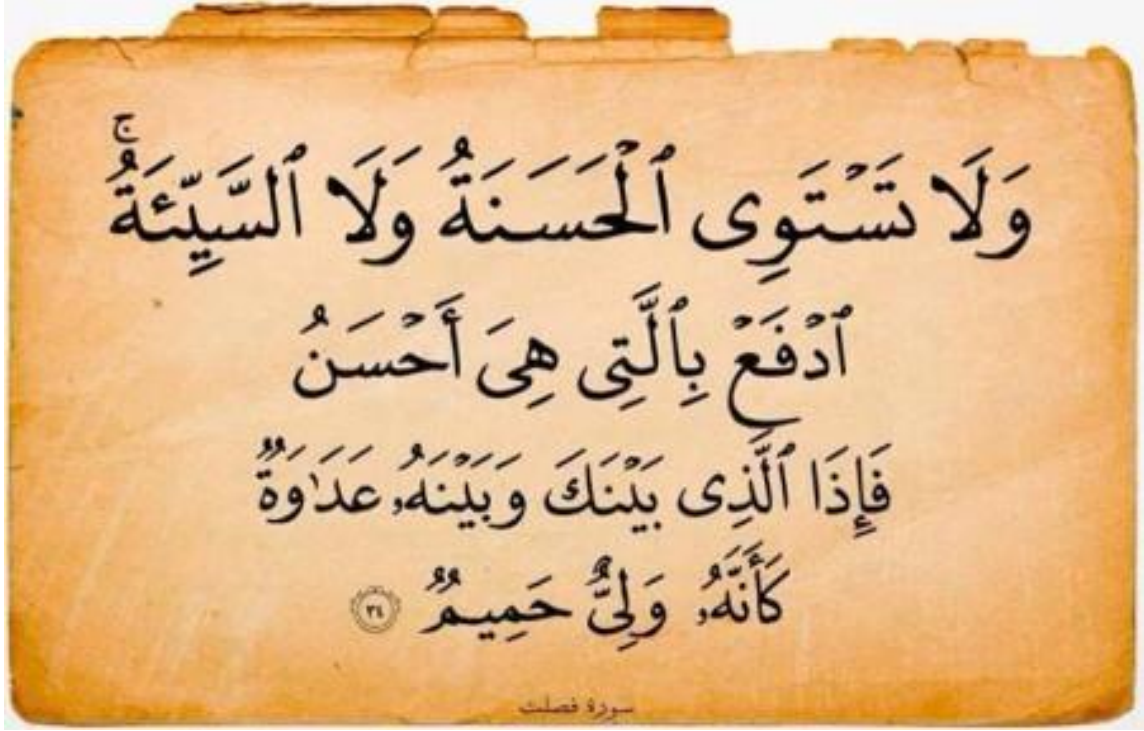 وَلَا تَسْتَوِى ٱلْحَسَنَةُ وَلَا ٱلسَّيِّئَةُ ۚ
ٱدْفَعْ بِٱلَّتِى هِىَ أَحْسَنُ
فَإِذَا ٱلَّذِى بَيْنَكَ وَبَيْنَهُۥ عَدَٰوَةٌ
كَأَنَّهُۥ وَلِىٌّ حَمِيمٌ ٣٤
سورة فصلت